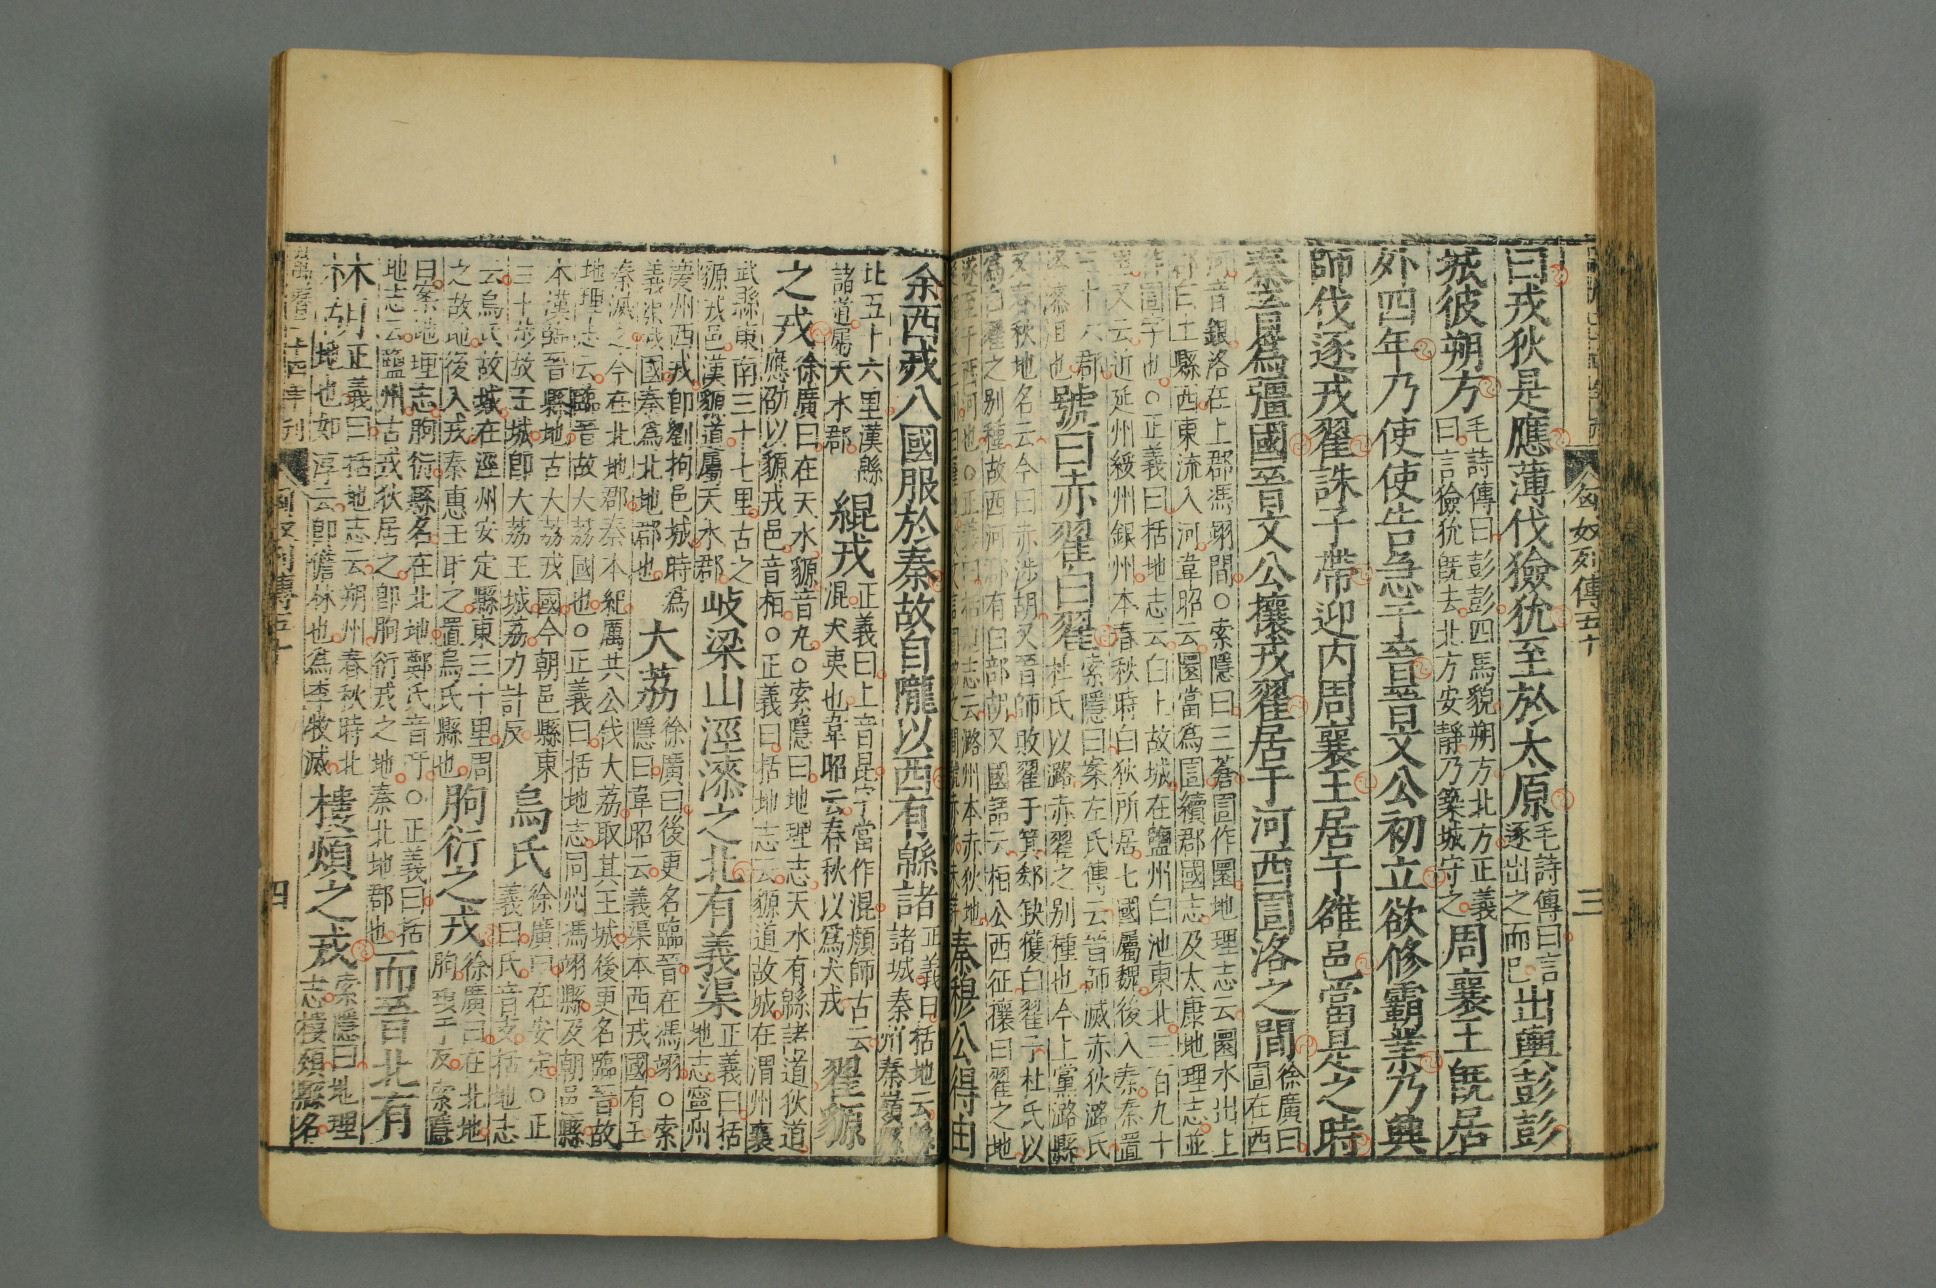 曰戎狄是應薄伐獫狁至於太原毛詩傳曰言逐出之而已出輿彭彭
城彼朔方毛詩傳曰彭彭四馬貌朔方北方正義曰言獫狁旣去北方安靜乃築城守之周襄王旣居
外四年乃使使告急于晉晉文公初立欲修霸業乃興
師伐逐戎翟誅子帶迎内周襄王居于雒邑當是之時
秦晉爲彊國晉文公攘戎翟居于河西圁洛之間徐廣曰圁在西
河音銀洛在上郡馮翊間○索隱曰三蒼圁作圜地理志云圜水出上
郡白土縣西東流入河韋昭云圜當爲圁續郡國志及太康地理志並
作圁字也○正義曰括地志云白土故城在鹽州白池東北三百九十
里又云近延州綏州銀州本春秋時白狄所居七國屬魏後入秦秦置
三十六郡洛漆沮也號曰赤翟白翟索隱曰案左氏傳云晉師滅赤狄潞氏杜氏以潞赤翟之别種也今上黨潞縣
又春秋地名云今曰赤涉胡又晉師敗翟于箕郤缺獲白翟子杜氏以
爲白翟之别種故西河郡有白部胡又國語云桓公西征攘白翟之地
遂至于西河也○正義曰括地志云潞州本赤狄地秦穆公得由
余西戎八國服於秦故自隴以西有緜諸正義曰括地云緜諸城秦州秦嶺縣
北五十六里漢縣諸道屬天水郡緄戎正義曰上音昆字當作混顔師古云混犬夷也韋昭云春秋以爲犬戎翟䝠
之戎徐廣曰在天水䝠音丸○索隱曰地理志天水有緜諸道狄道應劭以䝠戎邑音桓○正義曰括地志云䝠道故城在渭州襄
武縣東南三十七里古之䝠戎邑漢䝠道屬天水郡岐梁山涇漆之北有義渠正義曰括地志寧州
慶州西戎卽劉拘邑城時爲義渠戎國秦爲北地郡也大荔徐廣曰後更名臨晉在馮翊○索隱曰韋昭云義渠本西戎國有王
秦滅之今在北地郡秦本紀厲共公伐大荔取其王城後更名臨晉故
地理志云臨晉故大荔國也○正義曰括地志同州馮翊縣及朝邑縣
本漢臨晉縣地古大荔戎國今朝邑縣東三十步故王城卽大荔王城荔力計反烏氏徐廣曰在安定○正義曰氏音支括地志
云烏氏故城在涇州安定縣東三十里周之故地後入戎秦惠王取之置烏氏縣也朐衍之戎徐廣曰在北地朐音于反索隱
曰案地理志朐衍縣名在北地鄭氏音吁○正義曰括地志云鹽州古戎狄居之卽朐衍戎之地秦北地郡也而晉北有
林胡正義曰括地志云朔州春秋時北地也如淳云卽儋林也爲李牧滅樓煩之戎索隱曰地理志樓煩縣名
匈奴列傳五十
三
四